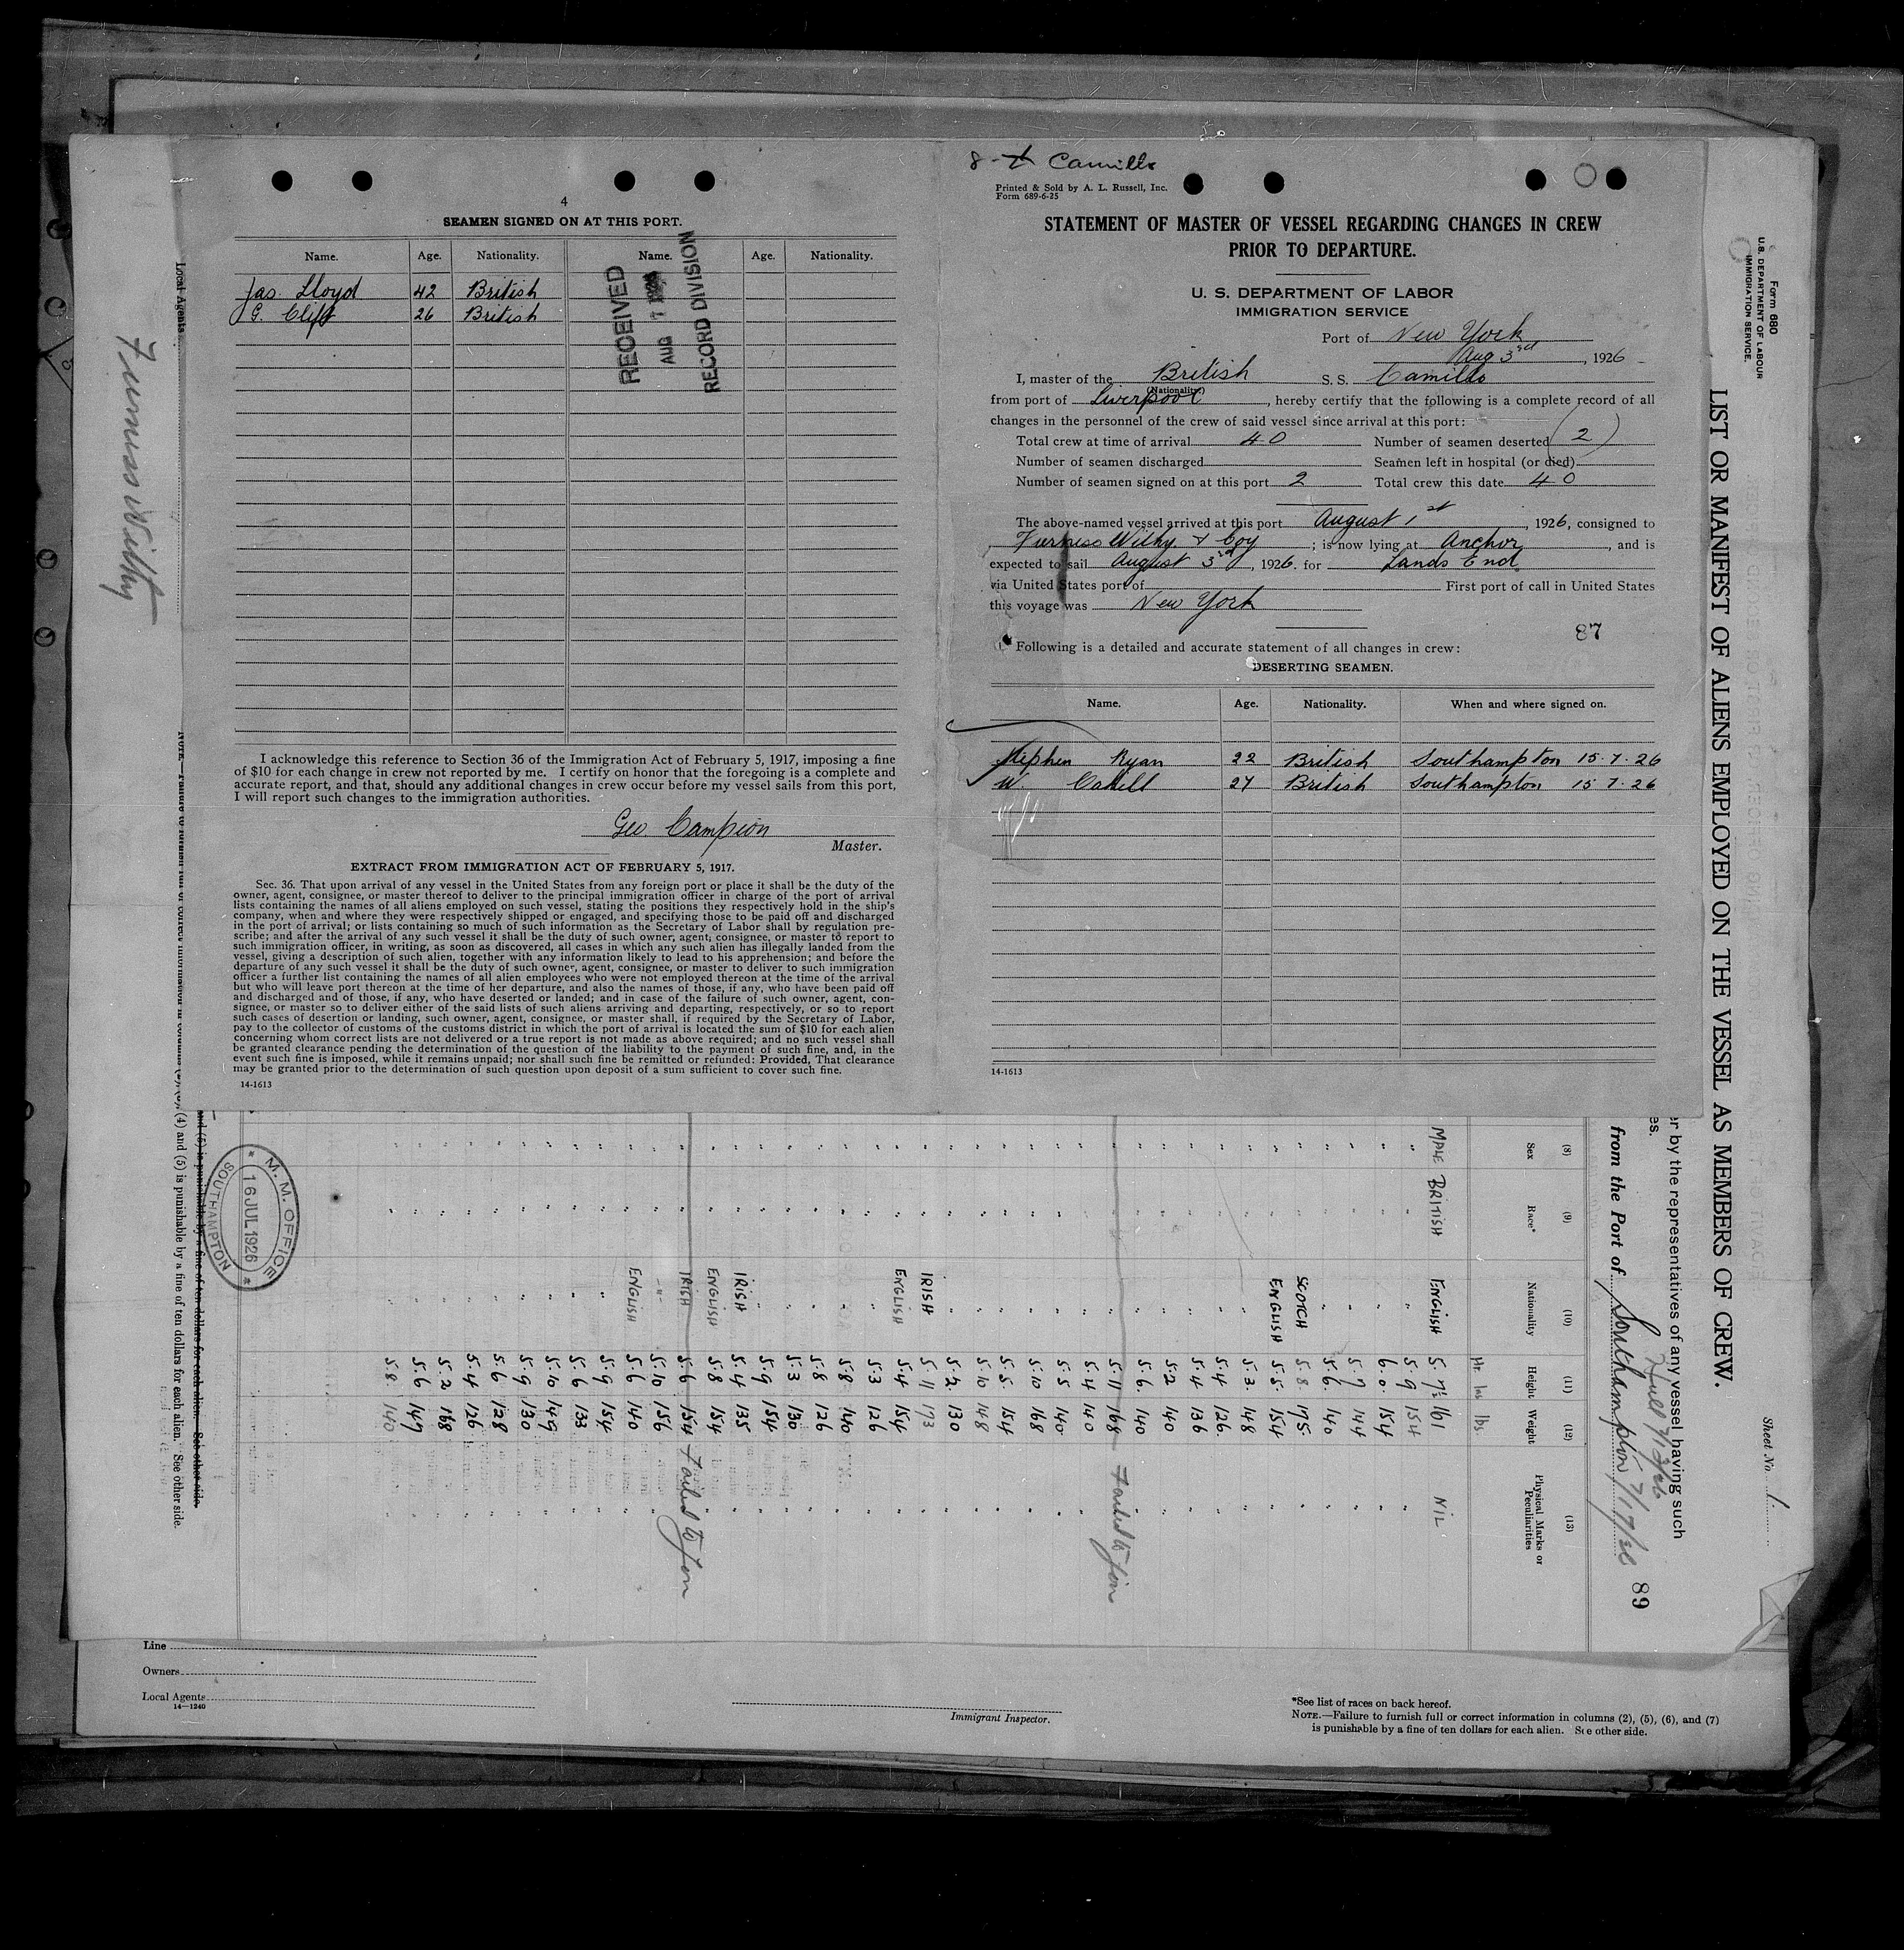 4
SEAMEN SIGNED ON AT THIS PORT.
Name. Age. Nationality. Name. Age. Nationality.
Jas. Lloyd 42 British
G. Clift 26 British
RECEIVED
AUG 7
RECORD DIVISION
I acknowledge this reference to Section 36 of the Immigration Act of February 5, 1917, imposing a fine
of $10 for each change in crew not reported by me. I certify on honor that the foregoing is a complete and
accurate report, and that, should any additional changes in crew occur before my vessel sails from this port,
I will report such changes to the immigration authorities.
Geo. Campion
Master.
EXTRACT FROM IMMIGRATION ACT OF FEBRUARY 5, 1917.
Sec. 36. That upon arrival of any vessel in the United States from any foreign port or place it shall be the duty of the
owner, agent, consignee, or master thereof to deliver to the principal immigration officer in charge of the port of arrival
lists containing the names of all aliens employed on such vessel, stating the positions they respectively hold in the ship's
company, when and where they were respectively shipped or engaged, and specifying those to be paid off and discharged
in the port of arrival; or lists containing so much of such information as the Secretary of Labor shall by regulation pre-
scribe; and after the arrival of any such vessel it shall be the duty of such owner, agent, consignee, or master to report to
such immigration officer, in writing, as soon as discovered, all cases in which any such alien has illegally landed from the
vessel, giving a description of such alien, together with any information likely to lead to his apprehension; and before the
departure of any such vessel it shall be the duty of such owner, agent, consignee, or master to deliver to such immigration
officer a further list containing the names of all alien employees who were not employed thereon at the time of the arrival
but who will leave port thereon at the time of her departure, and also the names of those, if any, who have been paid off
and discharged and of those, if any, who have deserted or landed; and in case of the failure of such owner, agent, con-
signee, or master so to deliver either of the said lists of such aliens arriving and departing, respectively, or so to report
such cases of desertion or landing, such owner, agent, consignee, or master shall, if required by the Secretary of Labor,
pay to the collector of customs of the customs district in which the port of arrival is located the sum of $10 for each alien
concerning whom correct lists are not delivered or a true report is not made as above required; and no such vessel shall
be granted clearance pending the determination of the question of the liability to the payment of such fine, and, in the
event such fine is imposed, while it remains unpaid; nor shall such fine be remitted or refunded: Provided, That clearance
may be granted prior to the determination of such question upon deposit of a sum sufficient to cover such fine.
14-1613
Camillo
Printed & Sold by A. L. Russell, Inc.
Form 689-6-25
STATEMENT OF MASTER OF VESSEL REGARDING CHANGES IN CREW
PRIOR TO DEPARTURE.
U. S. DEPARTMENT OF LABOR
IMMIGRATION SERVICE
Port of New York
Aug 3rd, 1926
I, master of the British S. S. Camillo
(Nationality)
from port of Liverpool, hereby certify that the following is a complete record of all
changes in the personnel of the crew of said vessel since arrival at this port:
Total crew at time of arrival 40 Number of seamen deserted (2)
Number of seamen discharged Seamen left in hospital (or died)
Number of seamen signed on at this port 2 Total crew this date 40
The above-named vessel arrived at this port August 1st, 1926, consigned to
Furness Withy & Coy; is now lying at Anchor, and is
expected to sail August 3rd, 1926. for Lands End
via United States port of First port of call in United States
this voyage was New York
87
Following is a detailed and accurate statement of all changes in crew:
DESERTING SEAMEN.
Name. Age. Nationality. When and where signed on.
Stephen Ryan 22 British Southampton 15.7.26
W. Cahill 27 British Southampton 15.7.26
14-1613
Local Agents
Furness Withy
(4) and (5) is punishable by a fine of ten dollars for each alien. See other side.
M. M. OFFICE
16 JUL 1926
SOUTHAMPTON
Form 680
U.S. DEPARTMENT OF LABOUR
IMMIGRATION SERVICE.
LIST OR MANIFEST OF ALIENS EMPLOYED ON THE VESSEL AS MEMBERS OF CREW.
Sheet No. 1
r by the representatives of any vessel having such
es.
Hull 7/13/26
from the Port of Southampton 7/17/26
89
(8) (9) (10) (11) (12) (13)
Sex Race* Nationality Height Weight Physical Marks or
Peculiarities
Ins lbs.
MALE BRITISH ENGLISH 5.7½ 161 NIL
" " " 5.9 154 "
" " " 6.0 154 "
" " " 5.7 144 "
" " " 5.6 140 "
" " SCOTCH 5.8 175 "
" " ENGLISH 5.5 154 "
" " " 5.3 148 "
" " " 5.4 126 "
" " " 5.4 136 "
" " " 5.2 140 "
" " " 5.6 140 "
" " " 5.11 168 Failed to Join
" " " 5.4 140 "
" " " 5.5 140 "
" " " 5.10 168 "
" " " 5.5 154 "
" " " 5.10 148 "
" " " 5.2 130 "
" " IRISH 5.11 173 "
" " ENGLISH 5.4 154 "
" " " 5.3 126 "
" " " 5.8 140 "
" " " 5.8 126 "
" " " 5.3 130 "
" " " 5.9 154 "
" " IRISH 5.4 135 "
" " ENGLISH 5.8 154 "
" " IRISH 5.6 154 Failed to Join
" " " 5.10 156 "
" " ENGLISH 5.6 140 "
" " " 5.9 154 "
" " " 5.6 133 "
" " " 5.10 149 "
" " " 5.9 130 "
" " " 5.6 128 "
" " " 5.4 126 "
" " " 5.2 168 "
" " " 5.6 149 "
" " " 5.8 140 "
Line
Owners
Local Agents
14—1240
Immigrant Inspector.
*See list of races on back hereof.
NOTE.—Failure to furnish full or correct information in columns (2), (5), (6), and (7)
is punishable by a fine of ten dollars for each alien. See other side.